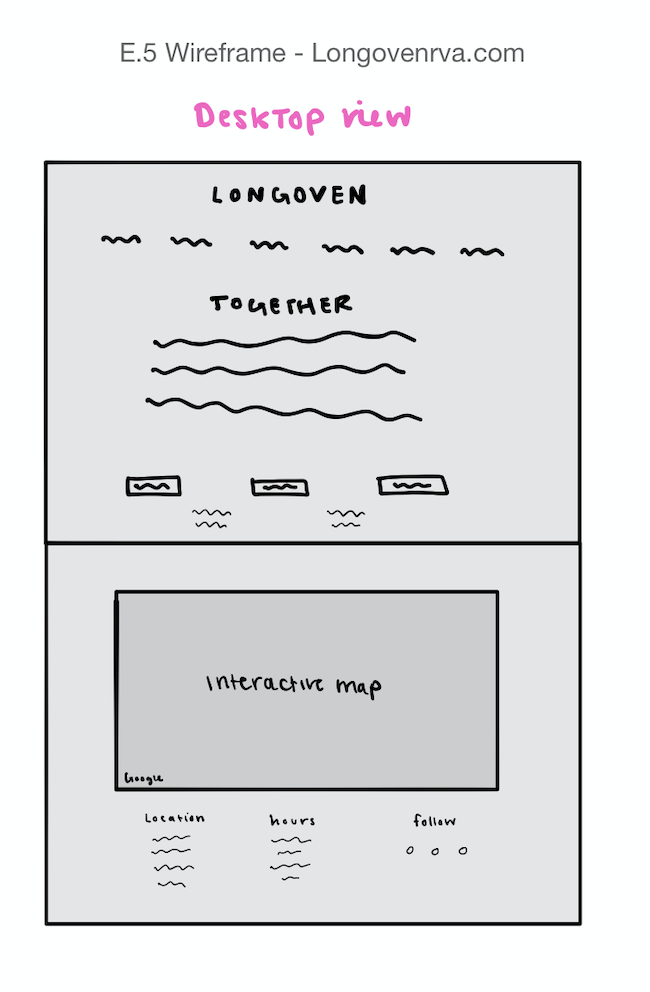 E.5 Wireframe - Longovenrva.com
Desktop view
LONGOVEN
TOGETHER
Interactive map
Google
Location hours follow